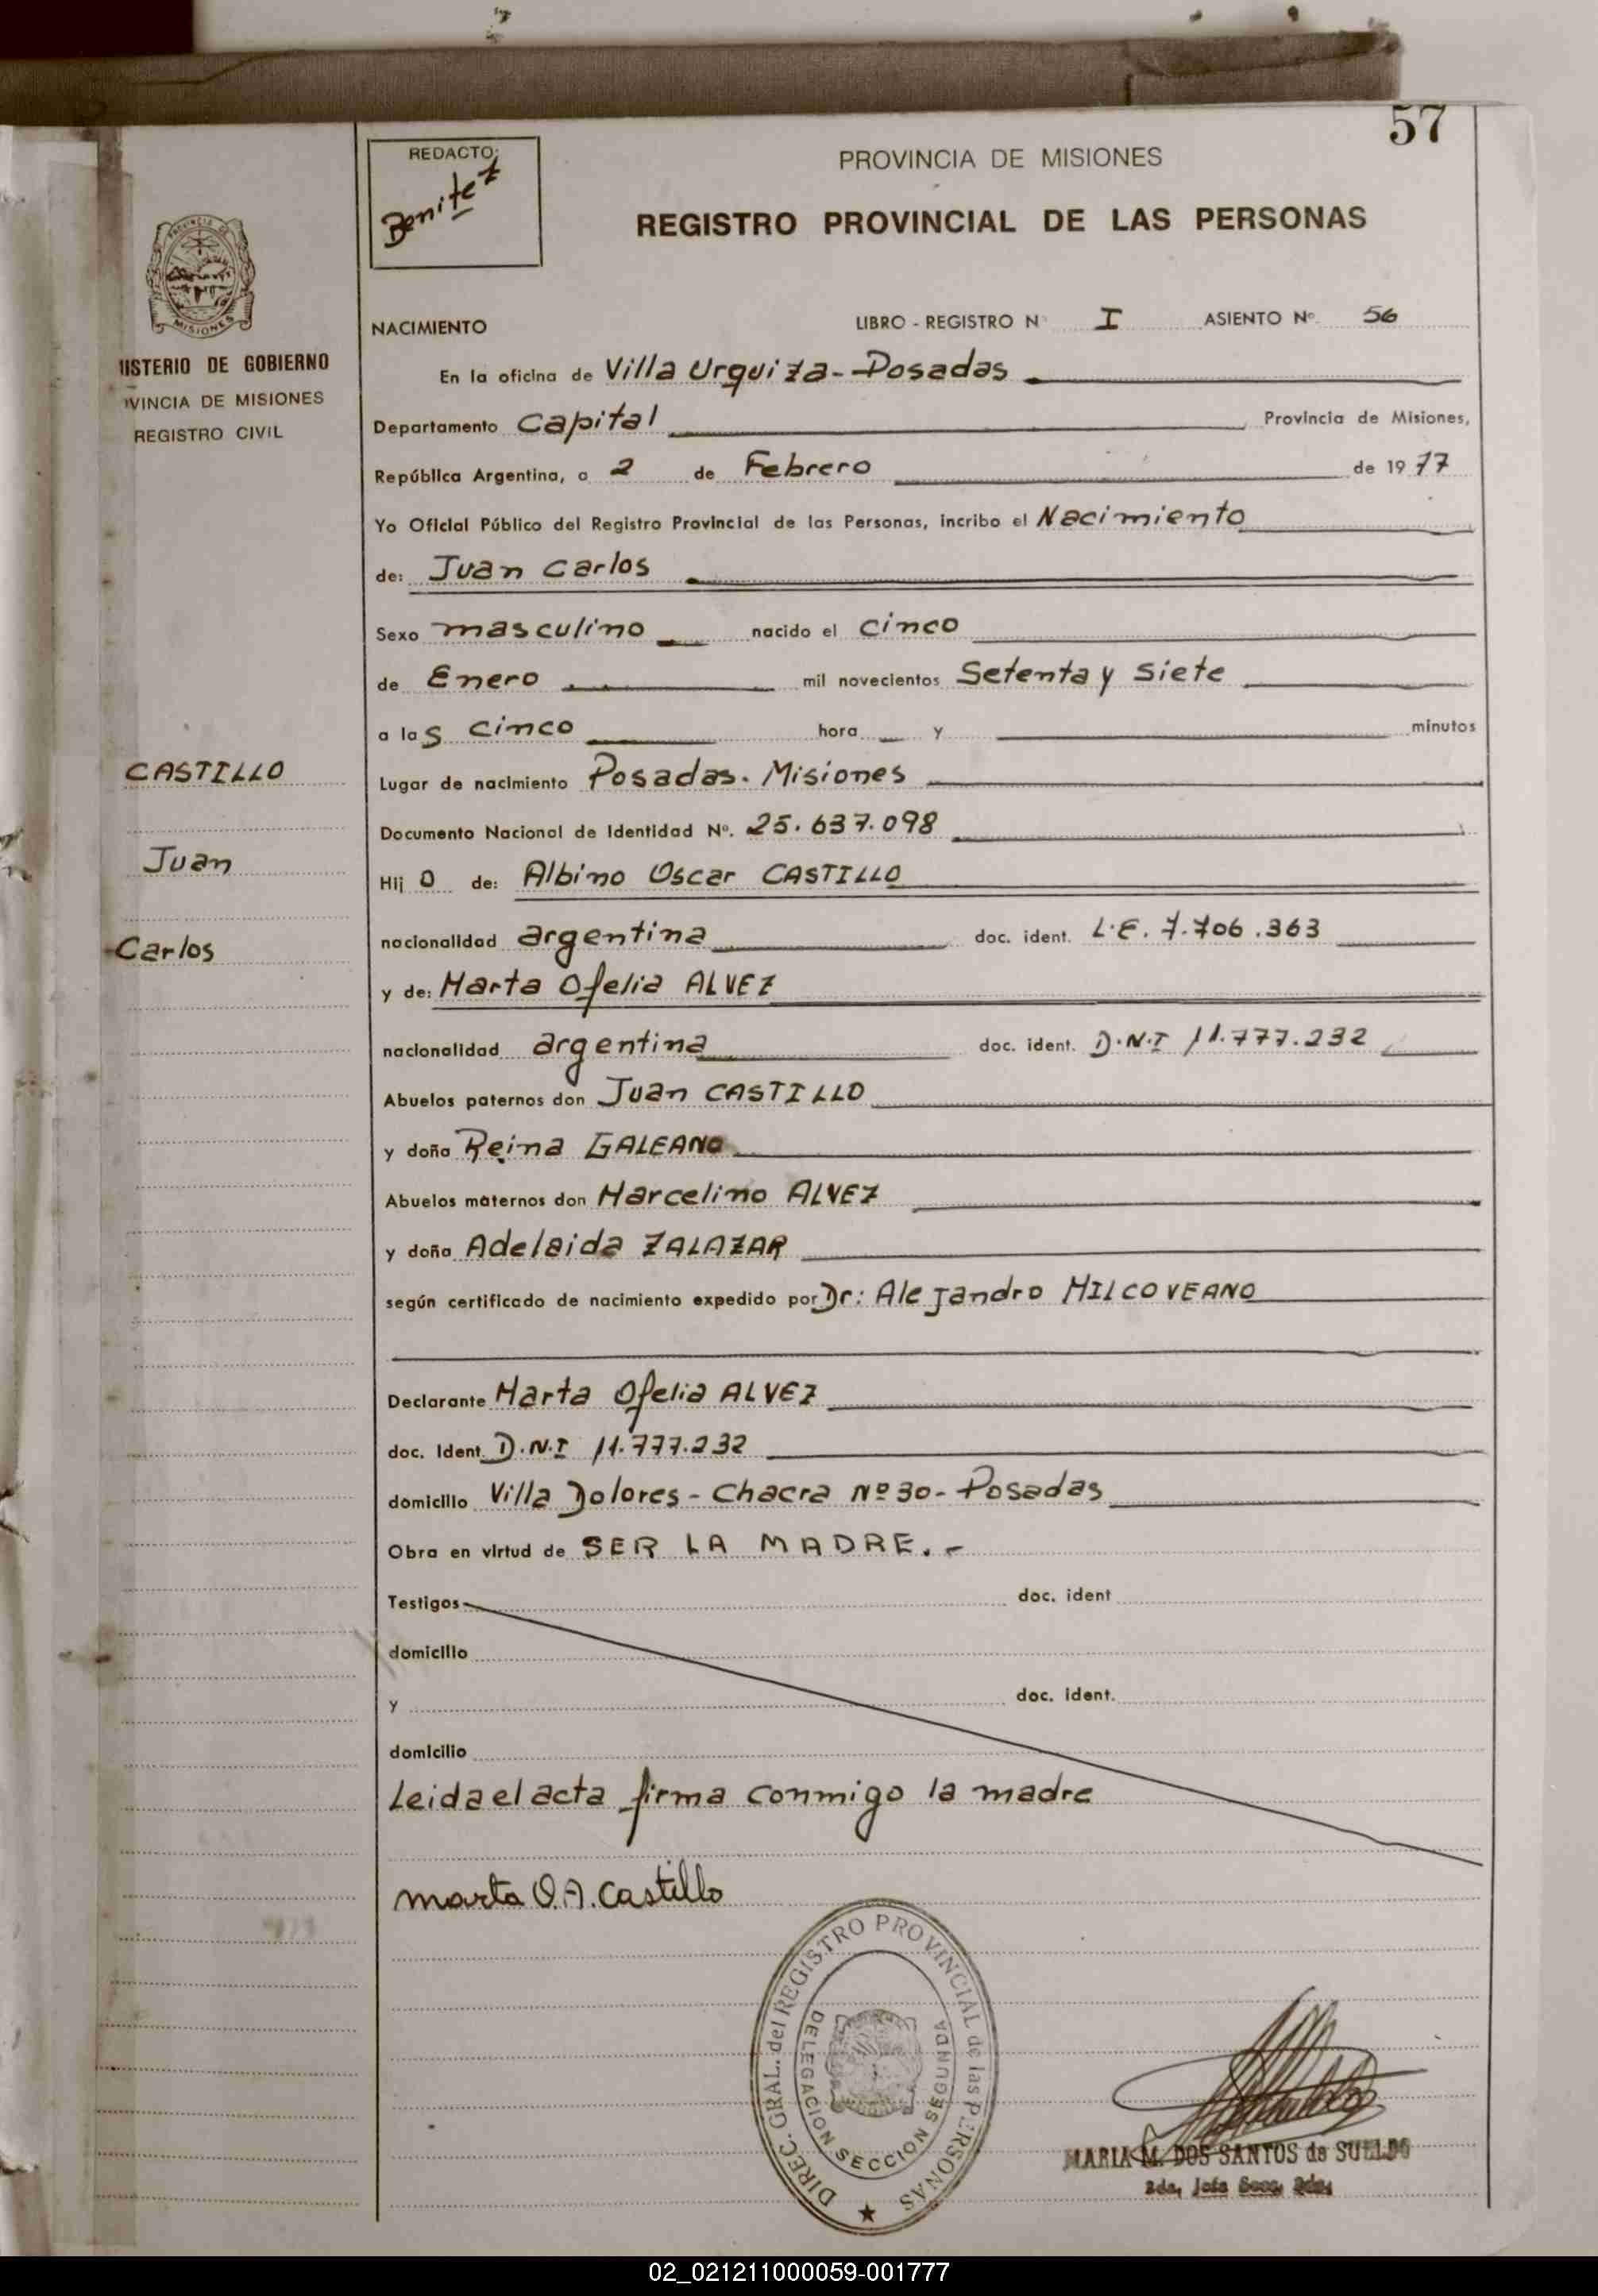 57
REDACTO:
Benitez
PROVINCIA DE MISIONES
REGISTRO PROVINCIAL DE LAS PERSONAS
MISIONES
NISTERIO DE GOBIERNO
VINCIA DE MISIONES
REGISTRO CIVIL
NACIMIENTO LIBRO - REGISTRO N° I ASIENTO N° 56
En la oficina de Villa Urquiza - Posadas
Departamento Capital Provincia de Misiones,
República Argentina, a 2 de Febrero de 1977
Yo Oficial Público del Registro Provincial de las Personas, incribo el Nacimiento
de: Juan Carlos
Sexo masculino nacido el cinco
de Enero mil novecientos Setenta y Siete
a las cinco hora y minutos
CASTILLO
Lugar de nacimiento Posadas. Misiones
Documento Nacional de Identidad N°. 25.637.098
Juan
Hijo de: Albino Oscar CASTILLO
Carlos
nacionalidad argentina doc. ident. L.E. 7.706.363
y de: Marta Ofelia ALVEZ
nacionalidad argentina doc. ident. D.N.I 11.777.232
Abuelos paternos don Juan CASTILLO
y doña Reina GALEANO
Abuelos maternos don Marcelino ALVEZ
y doña Adelaida ZALAZAR
según certificado de nacimiento expedido por Dr: Alejandro MILCOVEANO
Declarante Marta Ofelia ALVEZ
doc. Ident. D.N.I 11.777.232
domicilio Villa Dolores - Chacra Nº 30 - Posadas
Obra en virtud de SER LA MADRE. -
Testigos doc. ident
domicilio
y doc. ident.
domicilio
Leida el acta firma conmigo la madre
Marta O.A. Castillo
DIREC. GRAL. del REGISTRO PROVINCIAL de las PERSONAS
DELEGACION SECCION SEGUNDA
MARIA M. DOS SANTOS de SUELDO
2da. Jefe Secc. 2da.
02_021211000059-001777